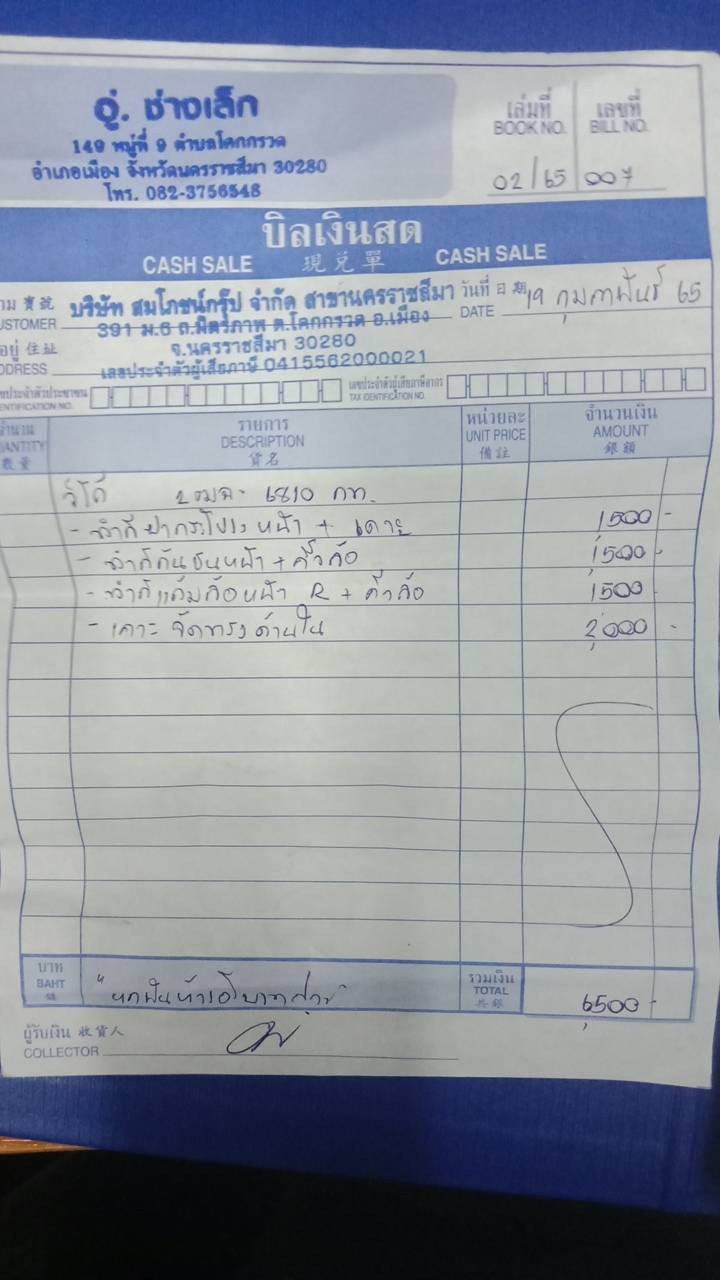 อู่. ช่างเล็ก
149 หมู่ที่ 9 ตำบลโคกกรวด
อำเภอเมือง จังหวัดนครราชสีมา 30280
โทร. 082-3756548
เล่มที่ เลขที่
BOOK NO. BILL NO.
02/65 007
บิลเงินสด
CASH SALE 現兌單 CASH SALE
บริษัท สมโภชน์กรุ๊ป จำกัด สาขานครราชสีมา วันที่ 日期 19 กุมภาพันธ์ 65
USTOMER 391 ม.6 ถ.มิตรภาพ ต.โคกกรวด อ.เมือง DATE
อยู่ 住址 จ.นครราชสีมา 30280
DDRESS เลขประจำตัวผู้เสียภาษี 0415562000021
ขประจำตัวประชาชน เลขประจำตัวผู้เสียภาษีอากร
ENTIFICATION NO. TAX IDENTIFICATION NO.
จำนวน รายการ หน่วยละ จำนวนเงิน
UANTITY DESCRIPTION UNIT PRICE AMOUNT
數量 貨名 備註 銀額
วีโก้ 2ฒฉ- 6810 กท.
- ทำสีฝากระโปรงหน้า + เคาะ 1,500 -
- ทำสีกันชนหน้า + คิ้วล้อ 1,500 -
- ทำสีแก้มล้อหน้า R + คิ้วล้อ 1,500 -
- เคาะ จัดทรงด้านใน 2,000 -
บาท รวมเงิน
BAHT "หกพันห้าร้อยบาทถ้วน" TOTAL 6,500 -
共銀
ผู้รับเงิน 收貨人
COLLECTOR